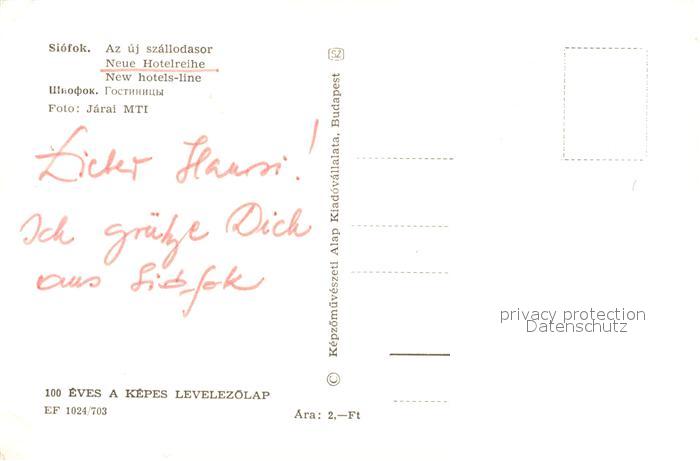 Siófok. Az új szállodasor
Neue Hotelreihe
New hotels-line
Шиофок. Гостиницы
Foto: Járai MTI
Lieber Hansi!
Ich grüße Dich
aus Siófok
SZ
© Képzőművészeti Alap Kiadóvállalata, Budapest
privacy protection
Datenschutz
100 ÉVES A KÉPES LEVELEZŐLAP
EF 1024/703
Ára: 2,—Ft